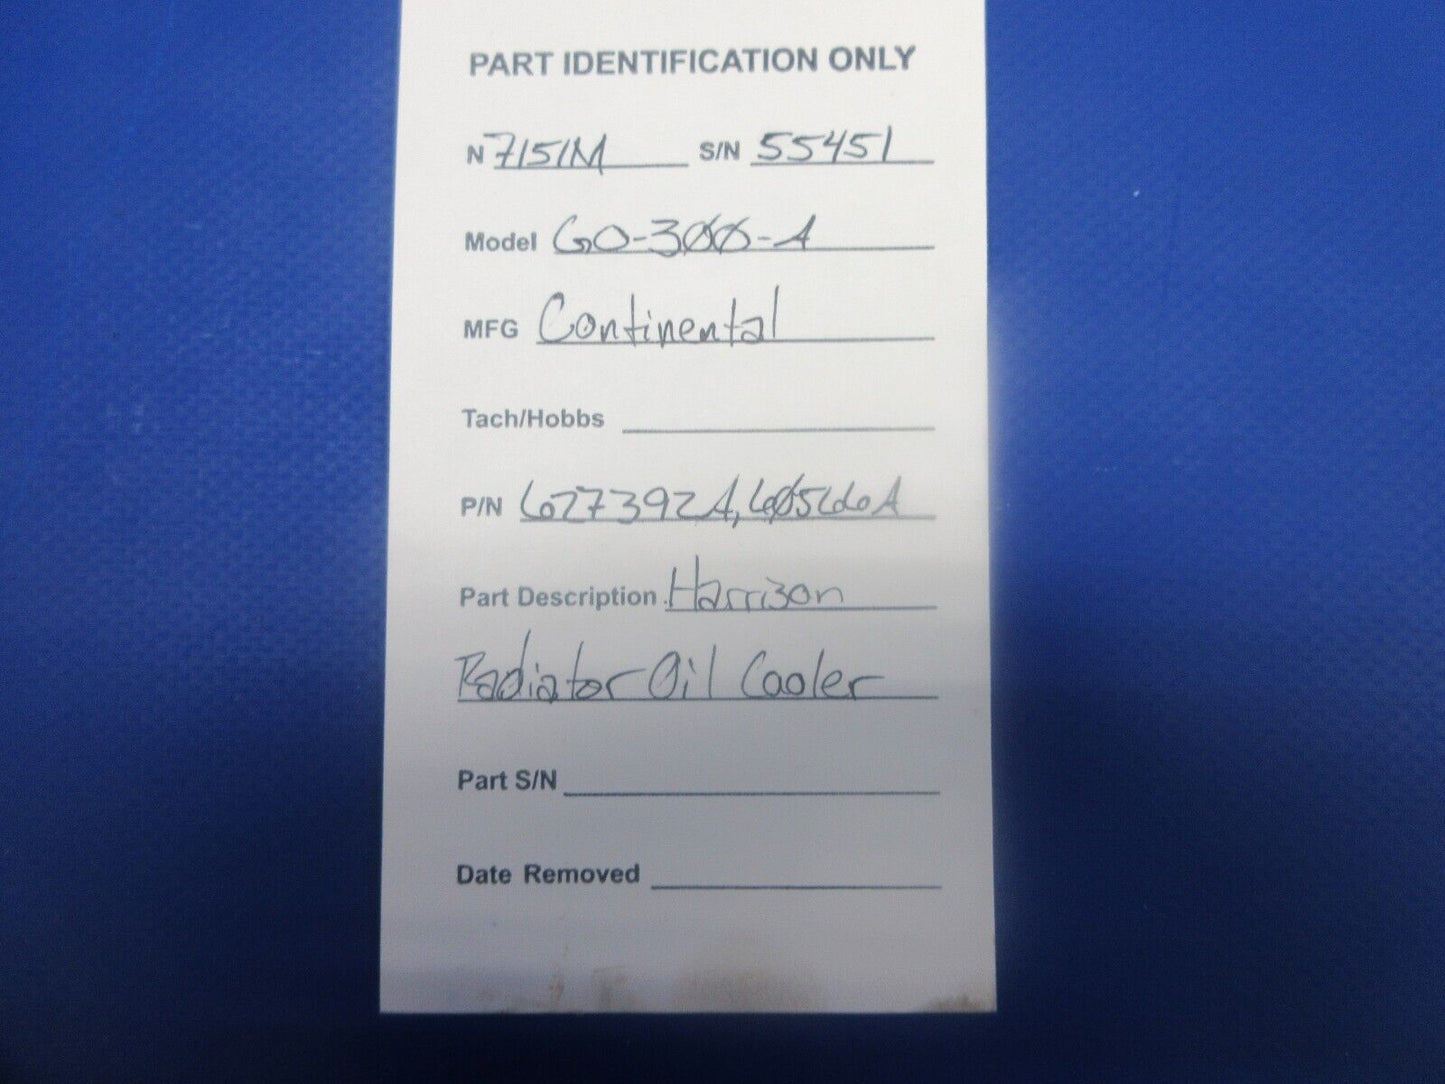 PART IDENTIFICATION ONLY
N 7151M S/N 55451
Model GO-300-A
MFG Continental
Tach/Hobbs
P/N 627392A, 60566A
Part Description Harrison
Radiator Oil Cooler
Part S/N
Date Removed